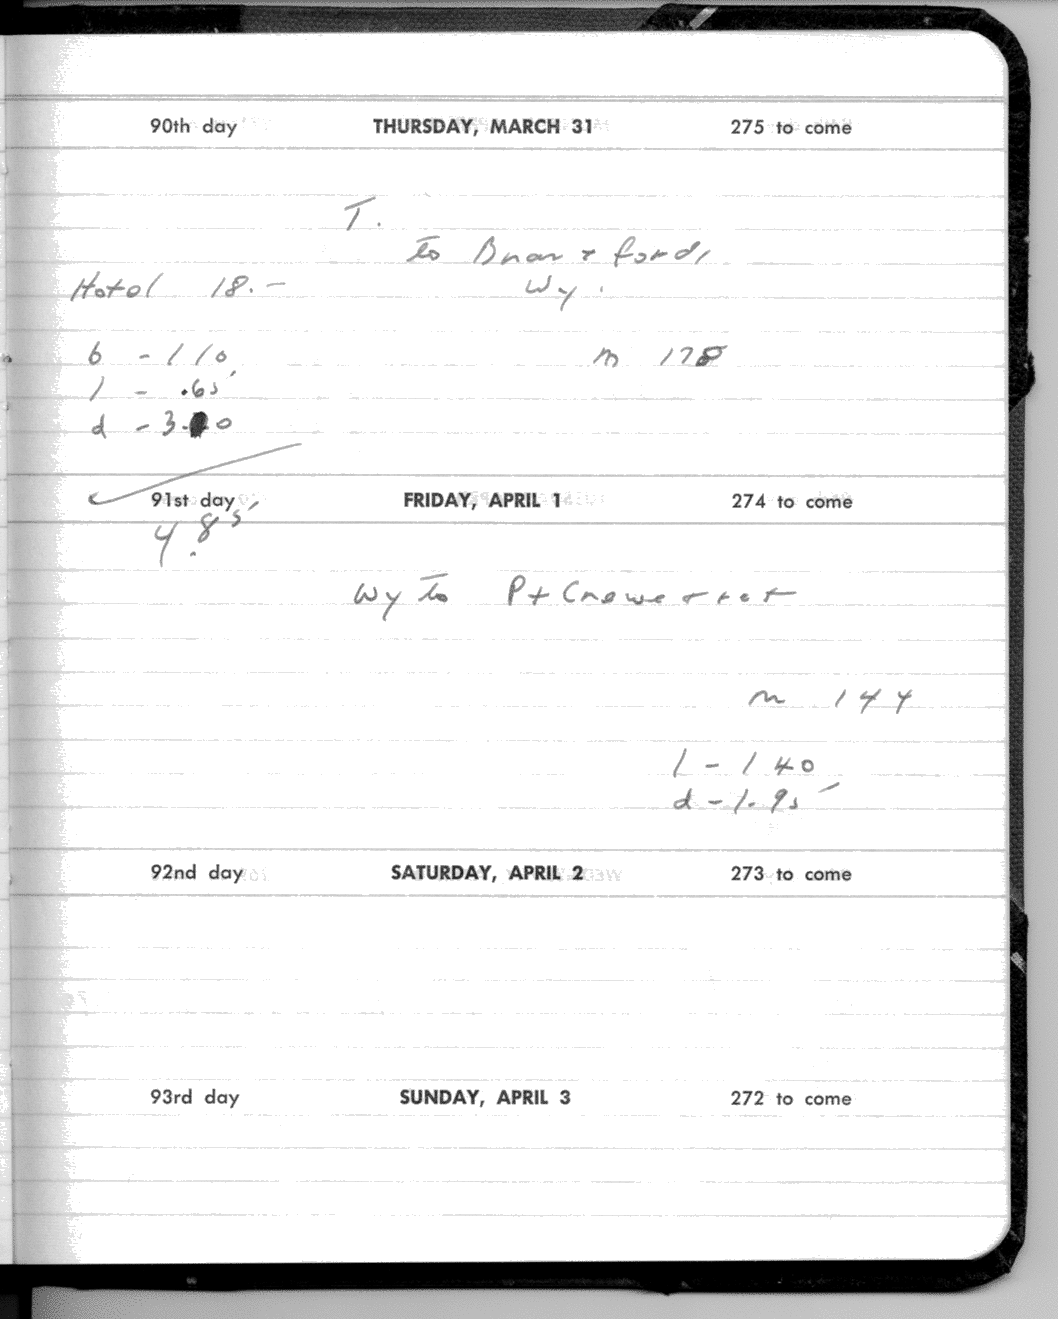 90th day THURSDAY, MARCH 31 275 to come
T.
to Brantford,
Hotel 18.- Wy.
b - 1 10 m 178
l - .65
d - 3.10
91st day FRIDAY, APRIL 1 274 to come
4.85
Wy to Pt
m 144
l - 1 40
d - 1.95
92nd day SATURDAY, APRIL 2 273 to come
93rd day SUNDAY, APRIL 3 272 to come